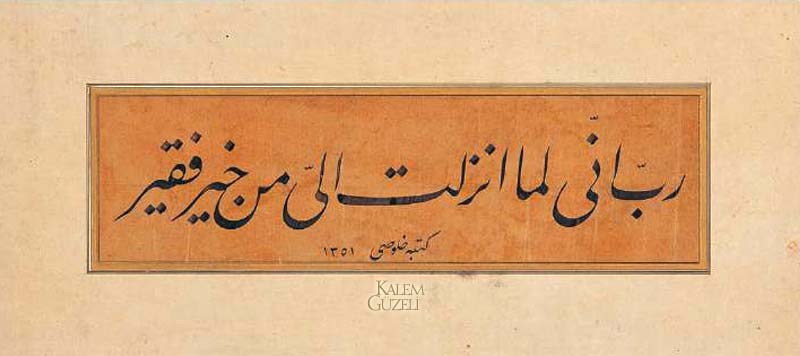 ربّ انّی لما انزلت الیّ من خیر فقیر
كتبه خلوصی ١٣٥١
KALEM
GÜZELİ